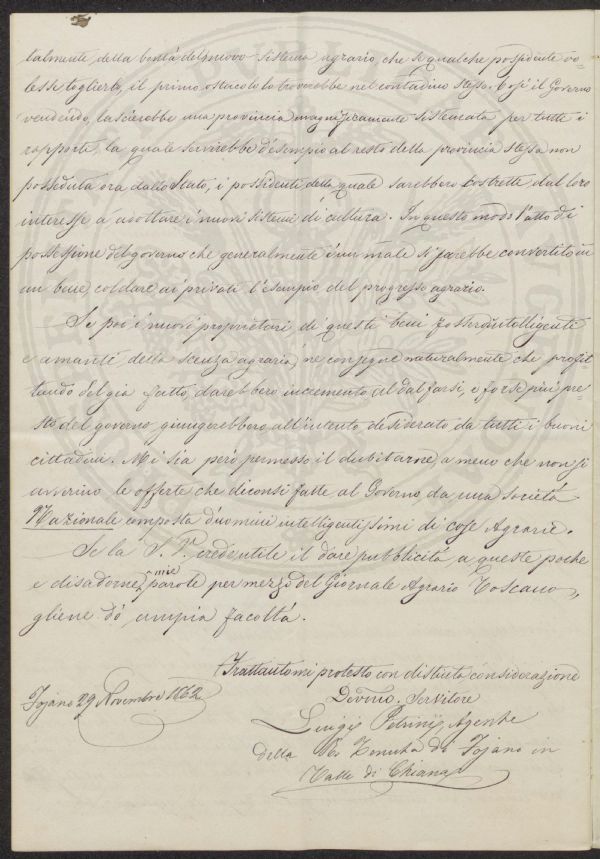 talmente della bontà del nuovo sistema agrario che se qualche possidente vo=
lesse toglierlo, il primo ostacolo lo troverebbe nel contadino stesso. Così il Governo
vendendo, lascierebbe una provincia magnificamente sistemata per tutti i
rapporti, la quale servirebbe d'esempio al resto della provincia stessa non
posseduta ora dallo Stato, i possidenti della quale sarebbero costretti dal loro
interesse a adottare i nuovi sistemi di cultura. In questo modo l'atto di
possessione del governo che generalmente è un male si sarebbe convertito in
un bene, col dare ai privati l'esempio del progresso agrario.
Se poi i nuovi proprietari di questi beni fossero intelligenti
e amanti della scienza agraria, ne consegue naturalmente che profit-
tando del già fatto, darebbero incremento al dal farsi, e forse più pre-
sto del governo giungerebbero all'intento desiderato da tutti i buoni
cittadini. Mi sia però permesso il dubitarne, a meno che non si
avverino le offerte che diconsi fatte al Governo da una società
Nazionale composta d'uomini intelligentissimi di cose Agrarie.
Se la S. V. credesi utile il dare pubblicità a queste poche
e disadorne mie parole per mezzo del Giornale Agrario Toscano,
gliene dò ampia facoltà.
Frattanto mi protesto con distinta considerazione
Fojano 29 Novembre 1862
Devmo. Servitore
Luigi Petrini Agente
della Ra Tenuta di Fojano in
Valle di Chiana